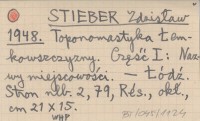 STIEBER Zdzisław
1948. Toponomastyka Łem-
kowszczyzny. Część I: Naz-
wy miejscowości. — Łódź.
Stron nlb. 2, 79, Rés., okł.,
cm 21 x 15.